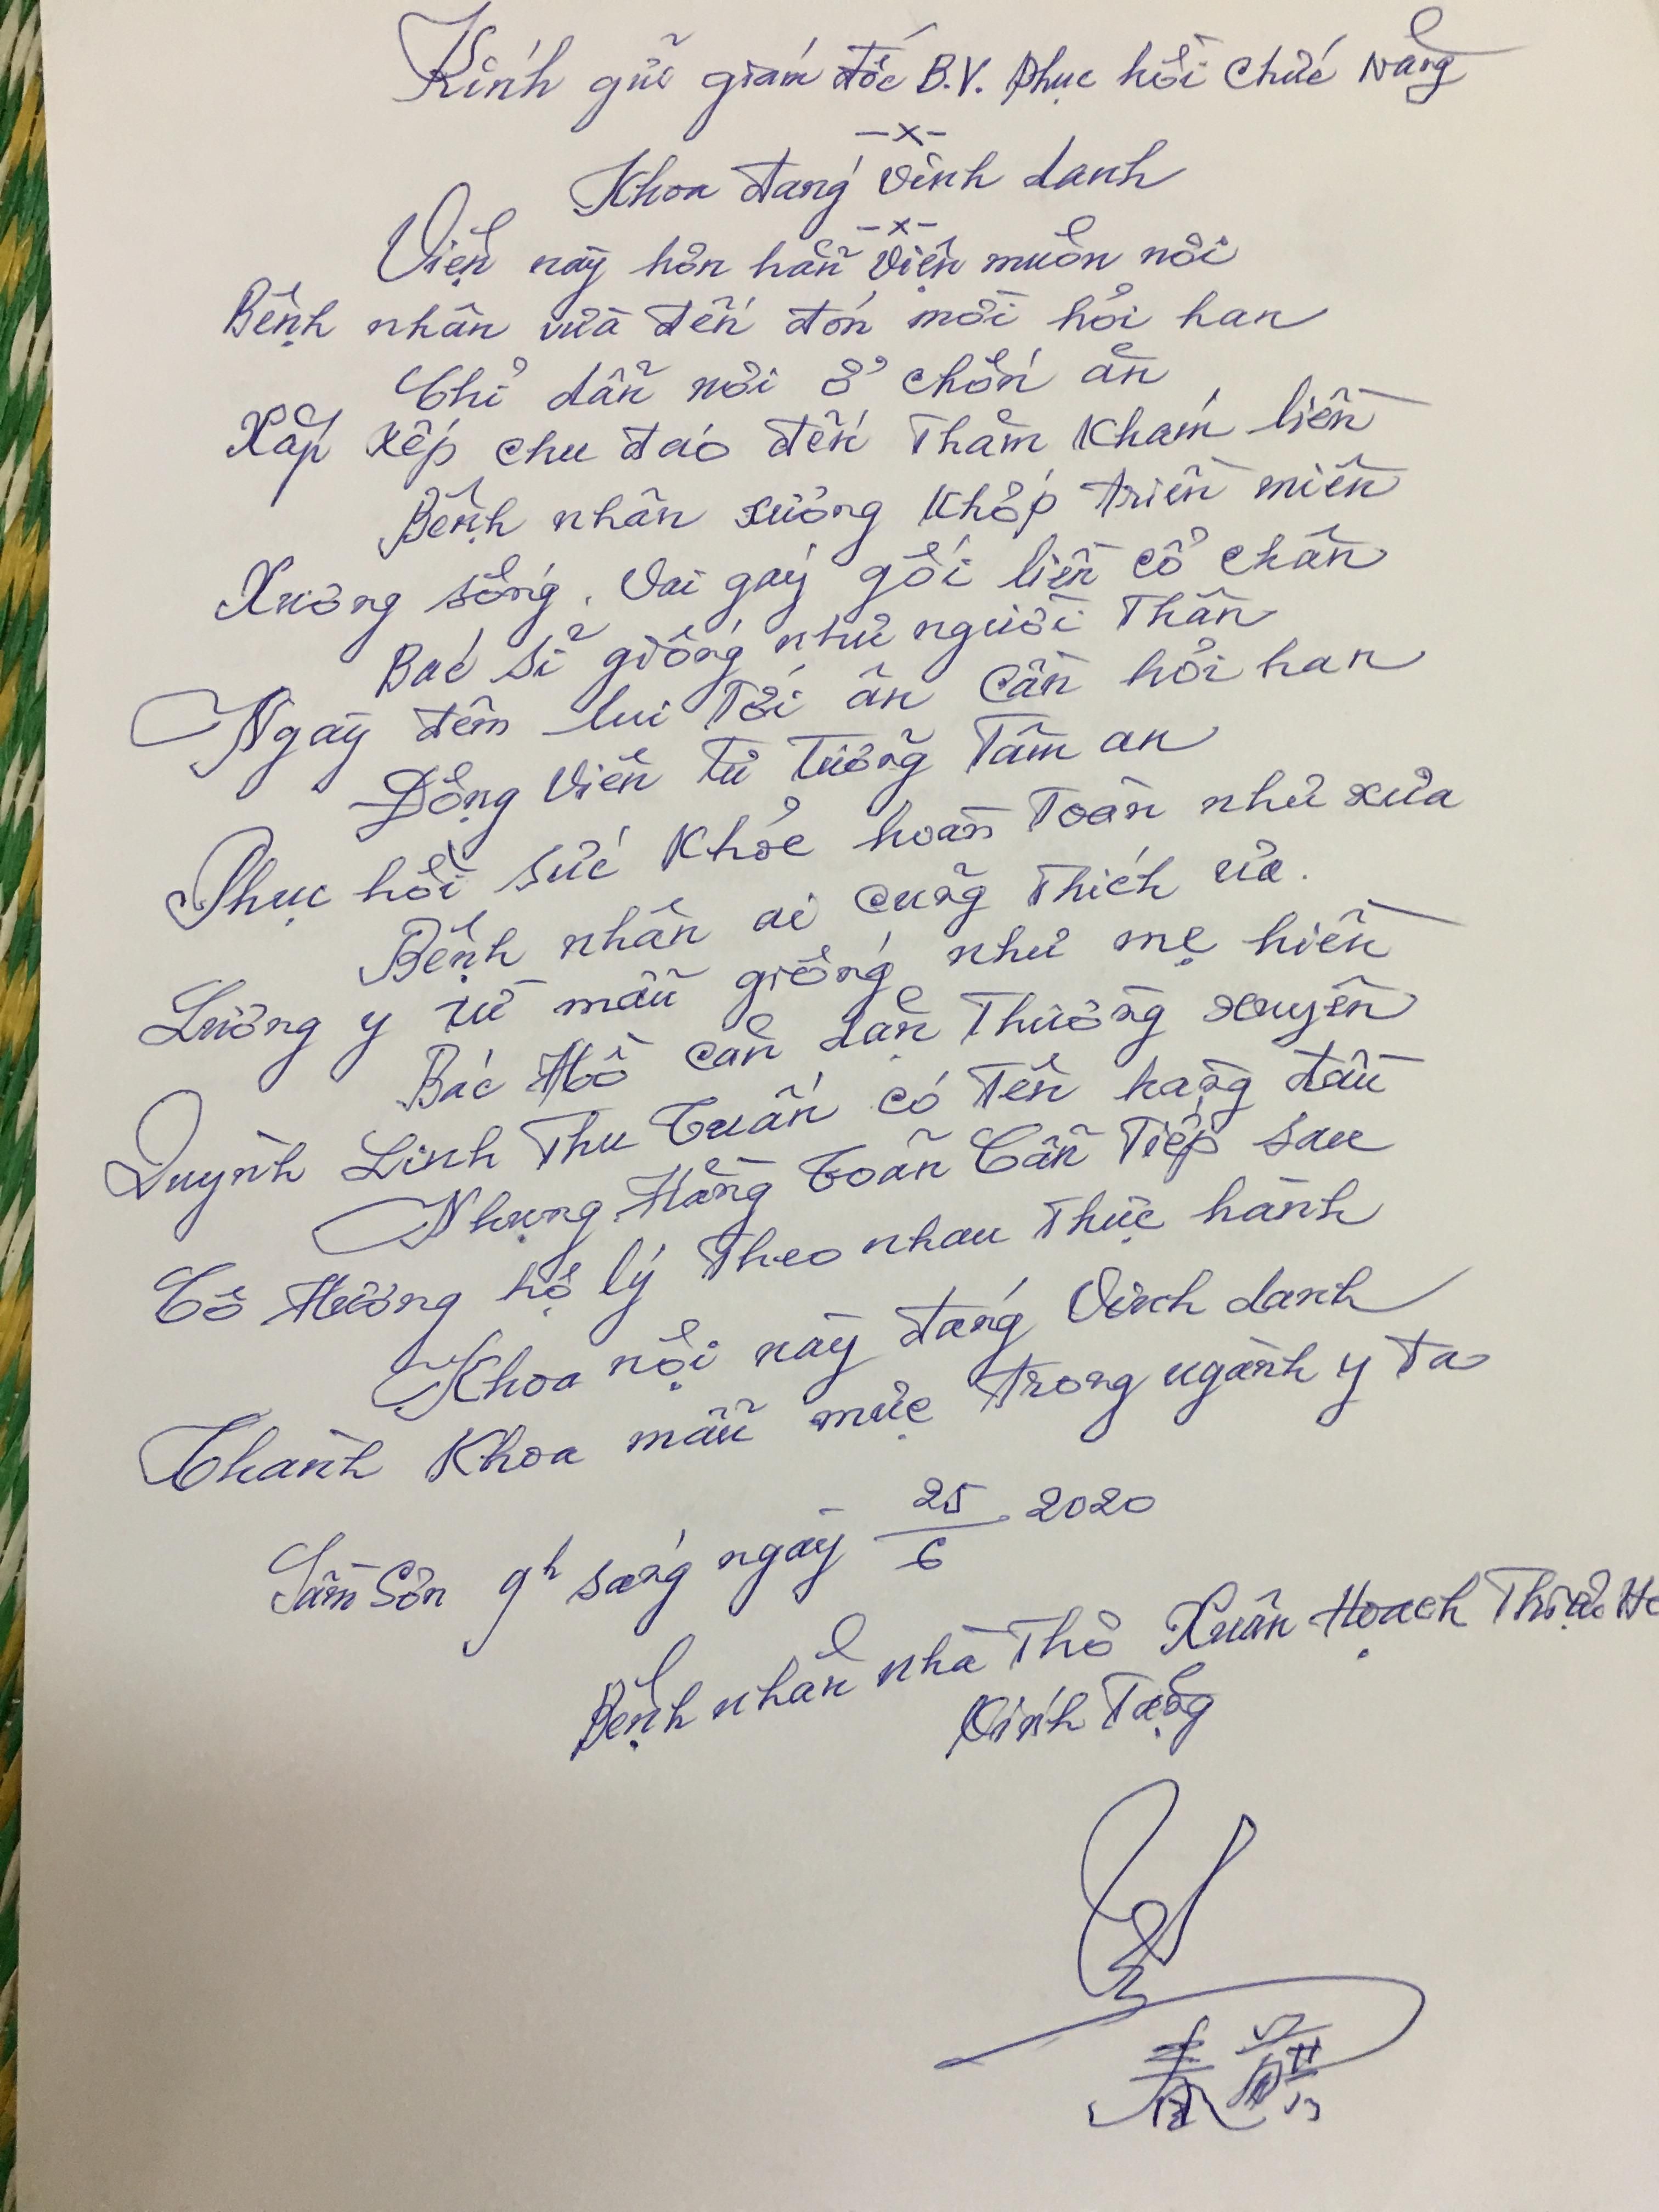 Kính gửi giám đốc B.V. phục hồi chức năng
-x-
Khoa đáng vinh danh
-x-
Viện này hơn hẳn viện muôn nơi
Bệnh nhân vừa đến đón mời hỏi han
Chỉ dẫn nơi ở chốn ăn
Xắp xếp chu đáo đến thăm khám liền
Bệnh nhân xương khớp triền miên
Xương sống, vai gáy gối liền cổ chân
Bác sĩ giống như người thân
Ngày đêm lui tới ân cần hỏi han
Động viên tư tưởng tâm an
Phục hồi sức khỏe hoàn toàn như xưa
Bệnh nhân ai cũng thích ưa.
Lương y từ mẫu giống như mẹ hiền
Bác Hồ căn dặn thường xuyên
Quỳnh Linh Thu Tuấn có tên hàng đầu
Nhung Hằng Toàn Cần tiếp sau
Cô Hương hộ lý theo nhau thực hành
Khoa nội này đáng vinh danh
Thành khoa mẫu mực trong ngành y ta
Sầm Sơn 9h sáng ngày 25/6 2020
Bệnh nhân nhà thơ Xuân Hoạch Thiệu
Kính tặng
春